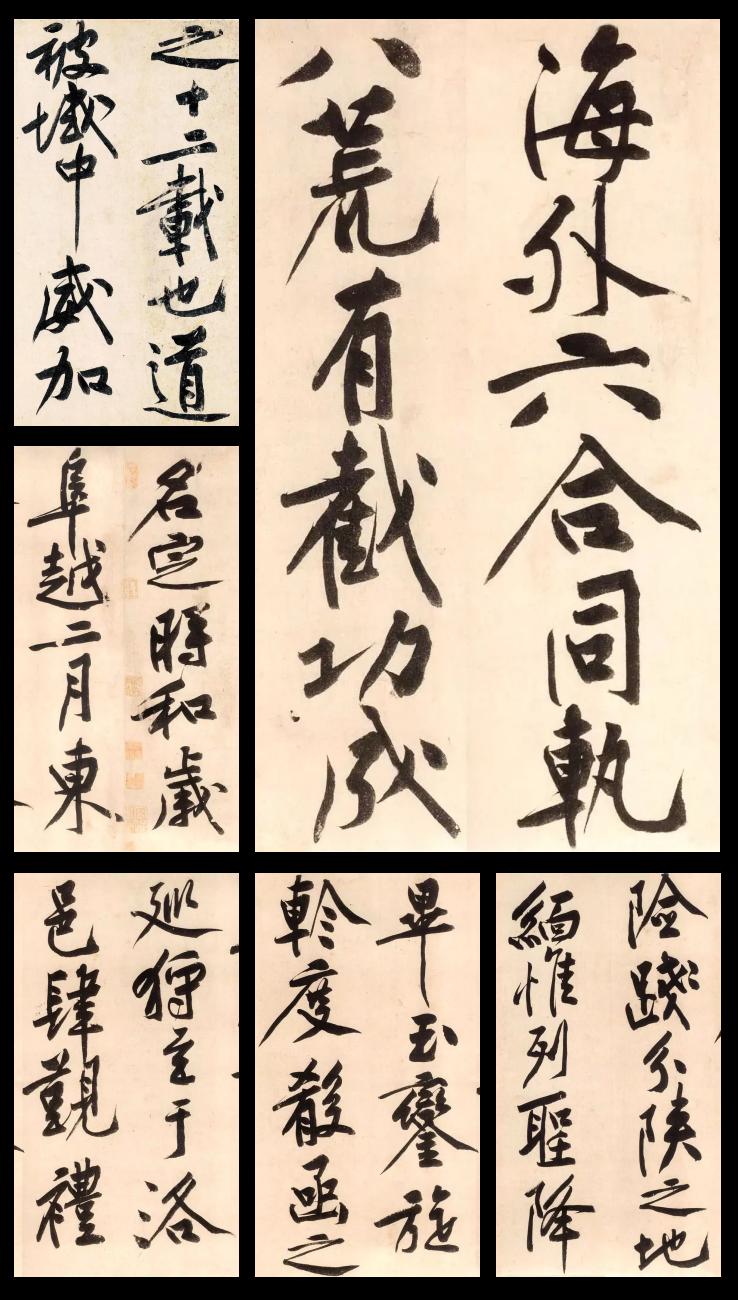 之十二載也道
被域中威加
海外六合同軌
八荒有截功成
名定時和歲
阜越二月東
巡狩至于洛
邑肆覲禮
畢玉鑾旋
軫度殽函之
險踐分陝之地
緬惟列聖降